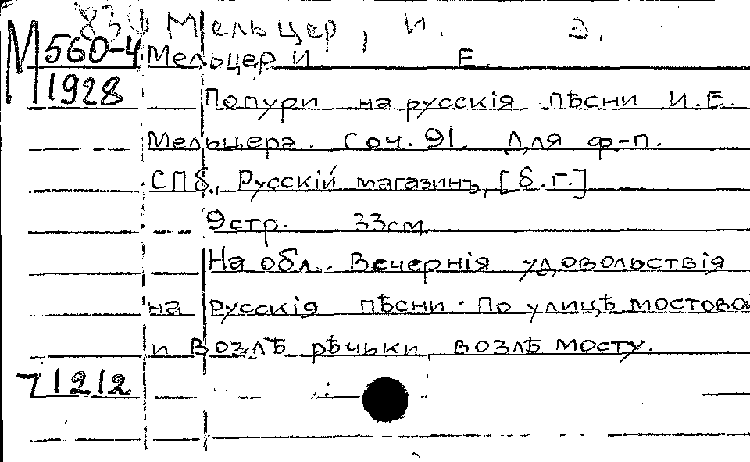 Мельцер, И. З.
М 560-4 Мельцер И Е.
1928 Попури на русскія пѣсни И.Е.
Мельцера. Соч. 91. Для ф-п.
СПб., Русскій магазинъ, [б.г.]
9 стр. 33 см
На обл.: Вечернія удовольствія
на Русскія пѣсни. По улицѣ мостово
и Возлѣ рѣчьки, возлѣ мосту.
71212